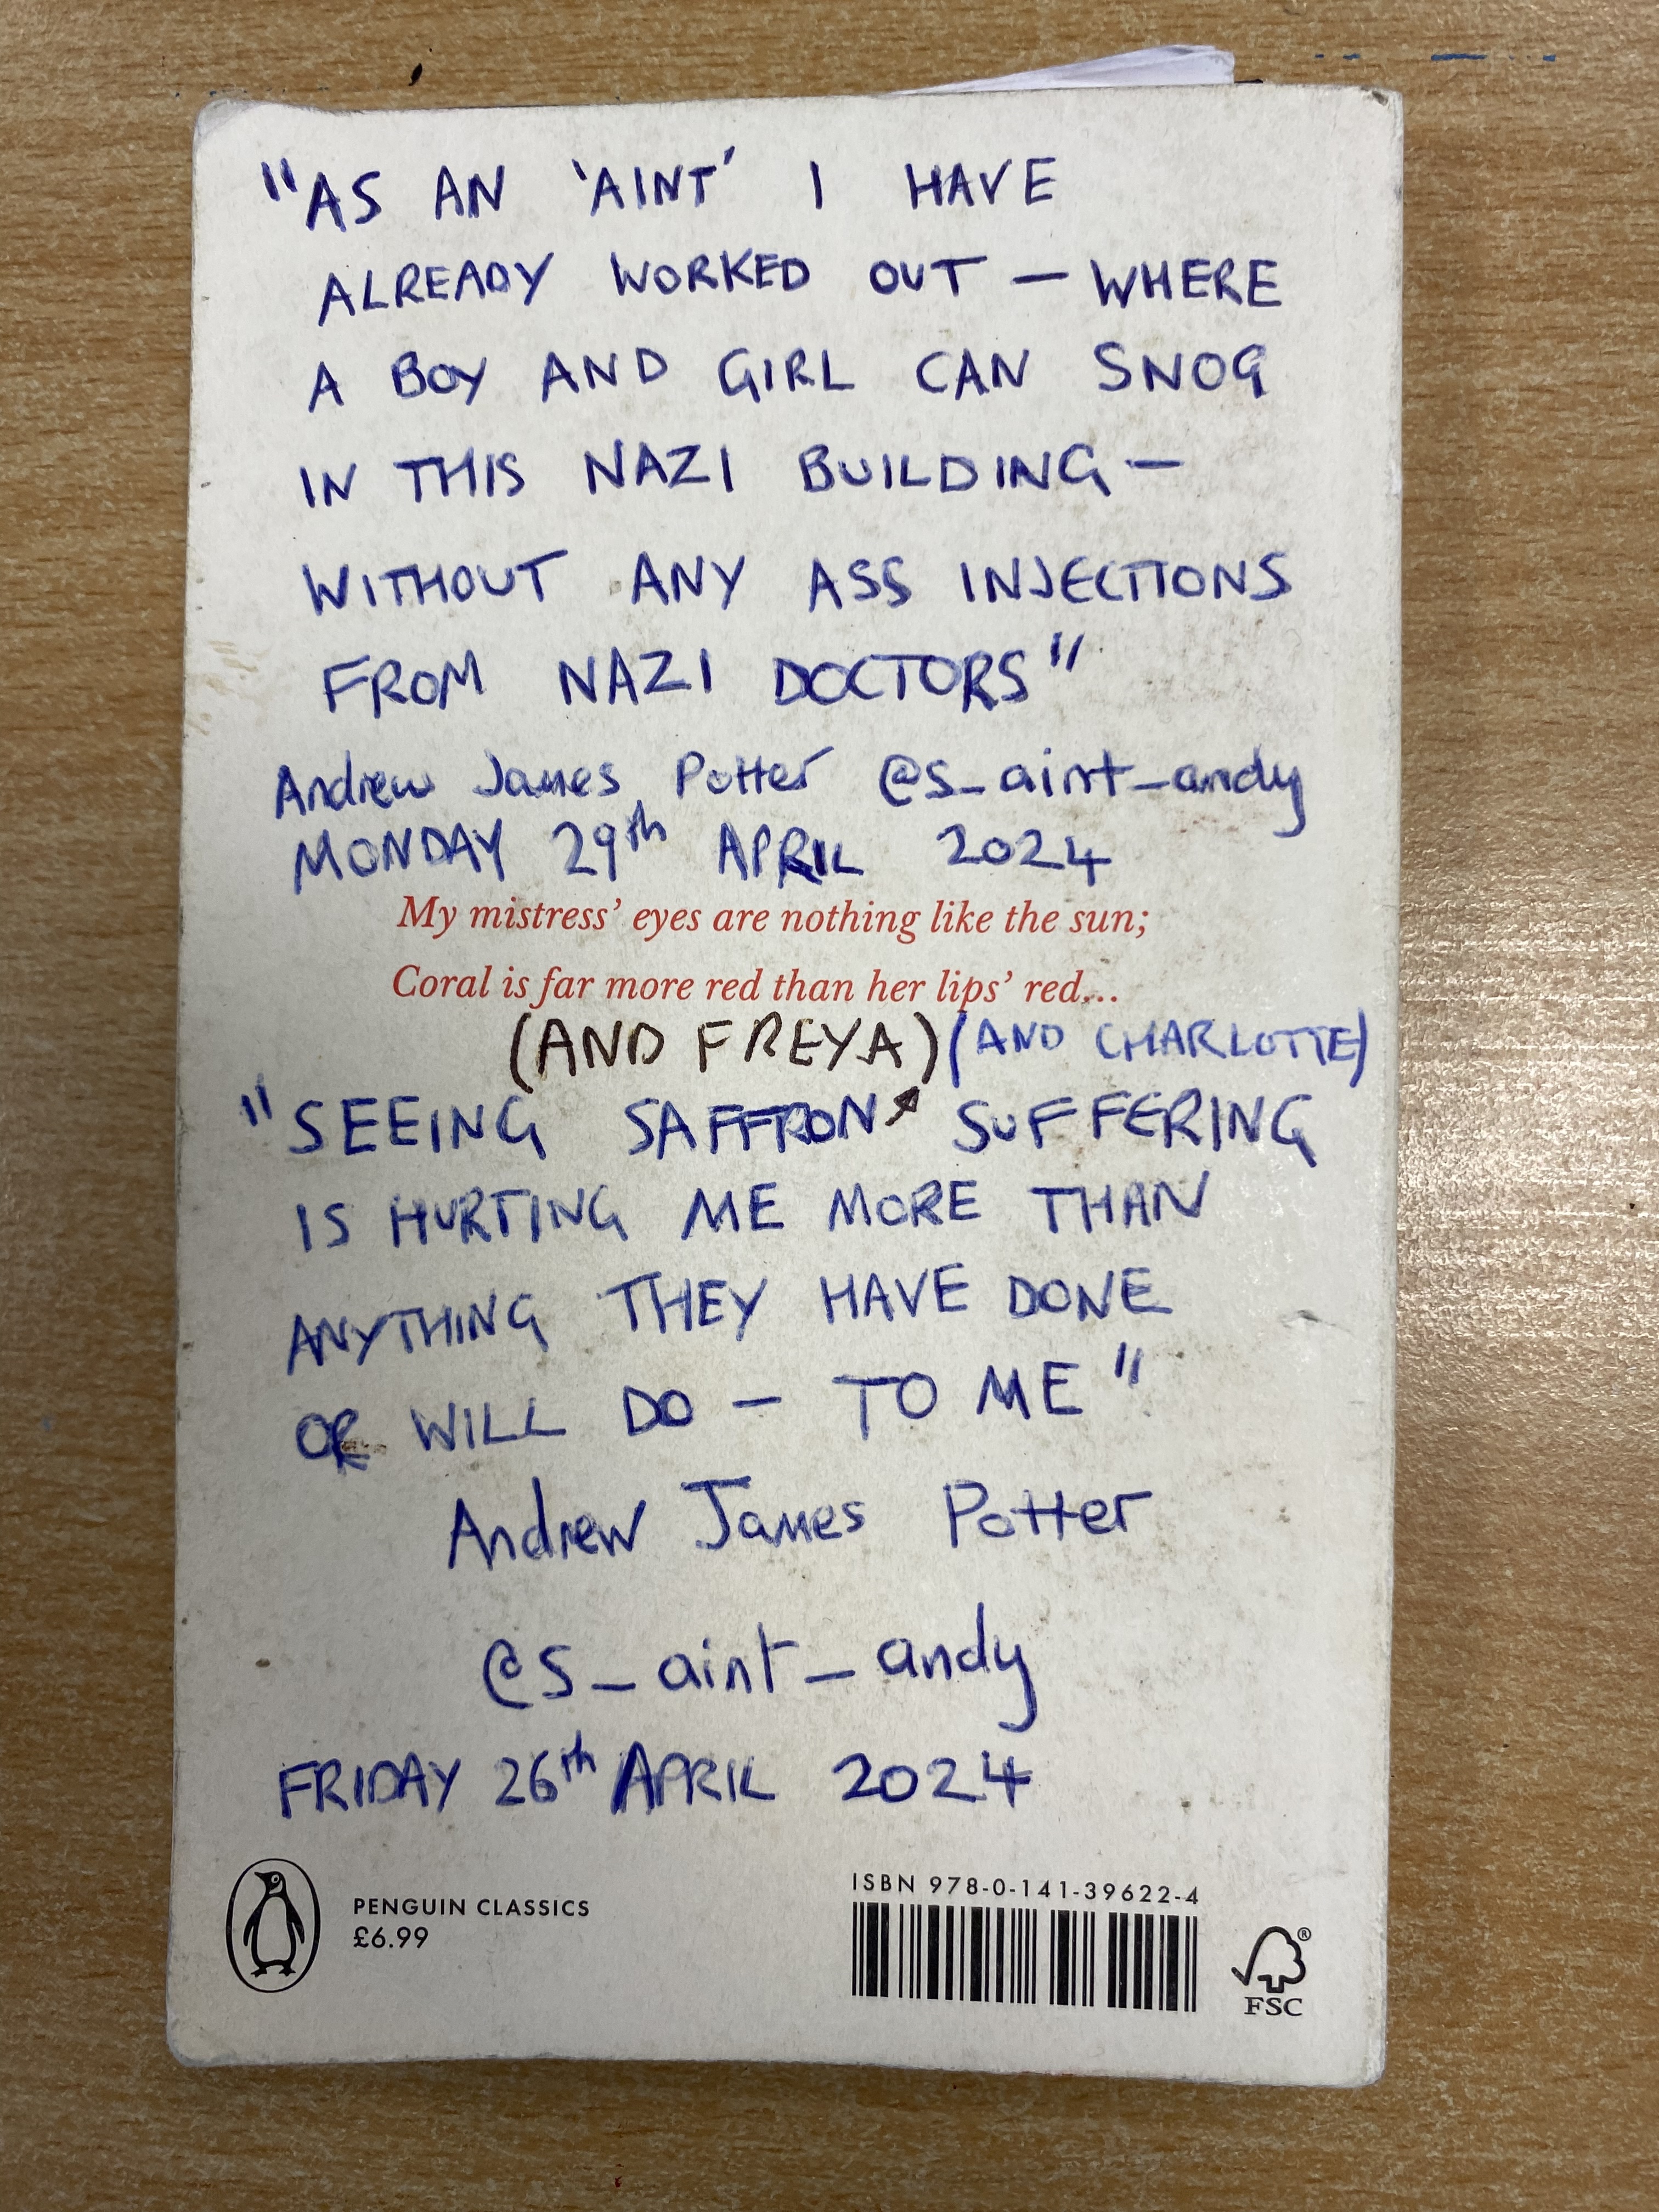 "AS AN 'AINT' I HAVE
ALREADY WORKED OUT — WHERE
A BOY AND GIRL CAN SNOG
IN THIS NAZI BUILDING —
WITHOUT ANY ASS INJECTIONS
FROM NAZI DOCTORS"
Andrew James Potter @s_aint_andy
MONDAY 29th APRIL 2024
My mistress' eyes are nothing like the sun;
Coral is far more red than her lips' red…
(AND FREYA) (AND CHARLOTTE)
"SEEING SAFFRON SUFFERING
IS HURTING ME MORE THAN
ANYTHING THEY HAVE DONE
OR WILL DO — TO ME"
Andrew James Potter
@s_aint_andy
FRIDAY 26th APRIL 2024
PENGUIN CLASSICS
£6.99
ISBN 978-0-141-39622-4
®
FSC